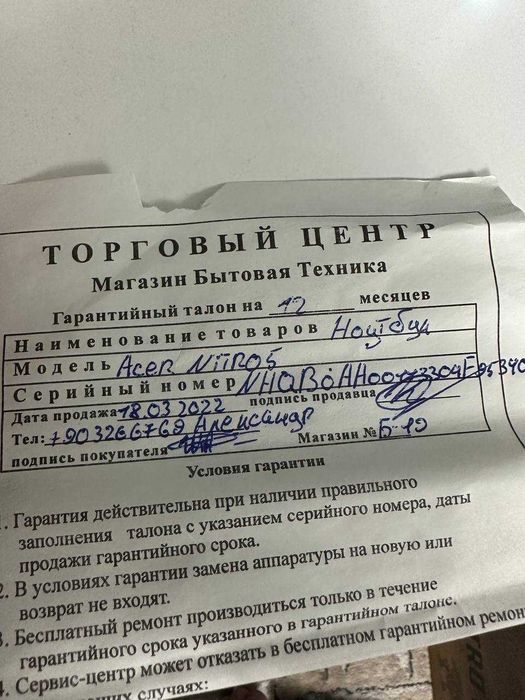 ТОРГОВЫЙ ЦЕНТР
Магазин Бытовая Техника
Гарантийный талон на 12 месяцев
Наименование товаров Ноутбук
Модель Acer NiTRO5
Серийный номер
Дата продажа 18.03.2022 подпись продавца
Тел: Александр
подпись покупателя Магазин № Б-10
Условия гарантии
1. Гарантия действительна при наличии правильного
заполнения талона с указанием серийного номера, даты
продажи гарантийного срока.
2. В условиях гарантии замена аппаратуры на новую или
возврат не входят.
3. Бесплатный ремонт производиться только в течение
гарантийного срока указанного в гарантийном талоне.
4. Сервис-центр может отказать в бесплатном гарантийном ремон
случаях: